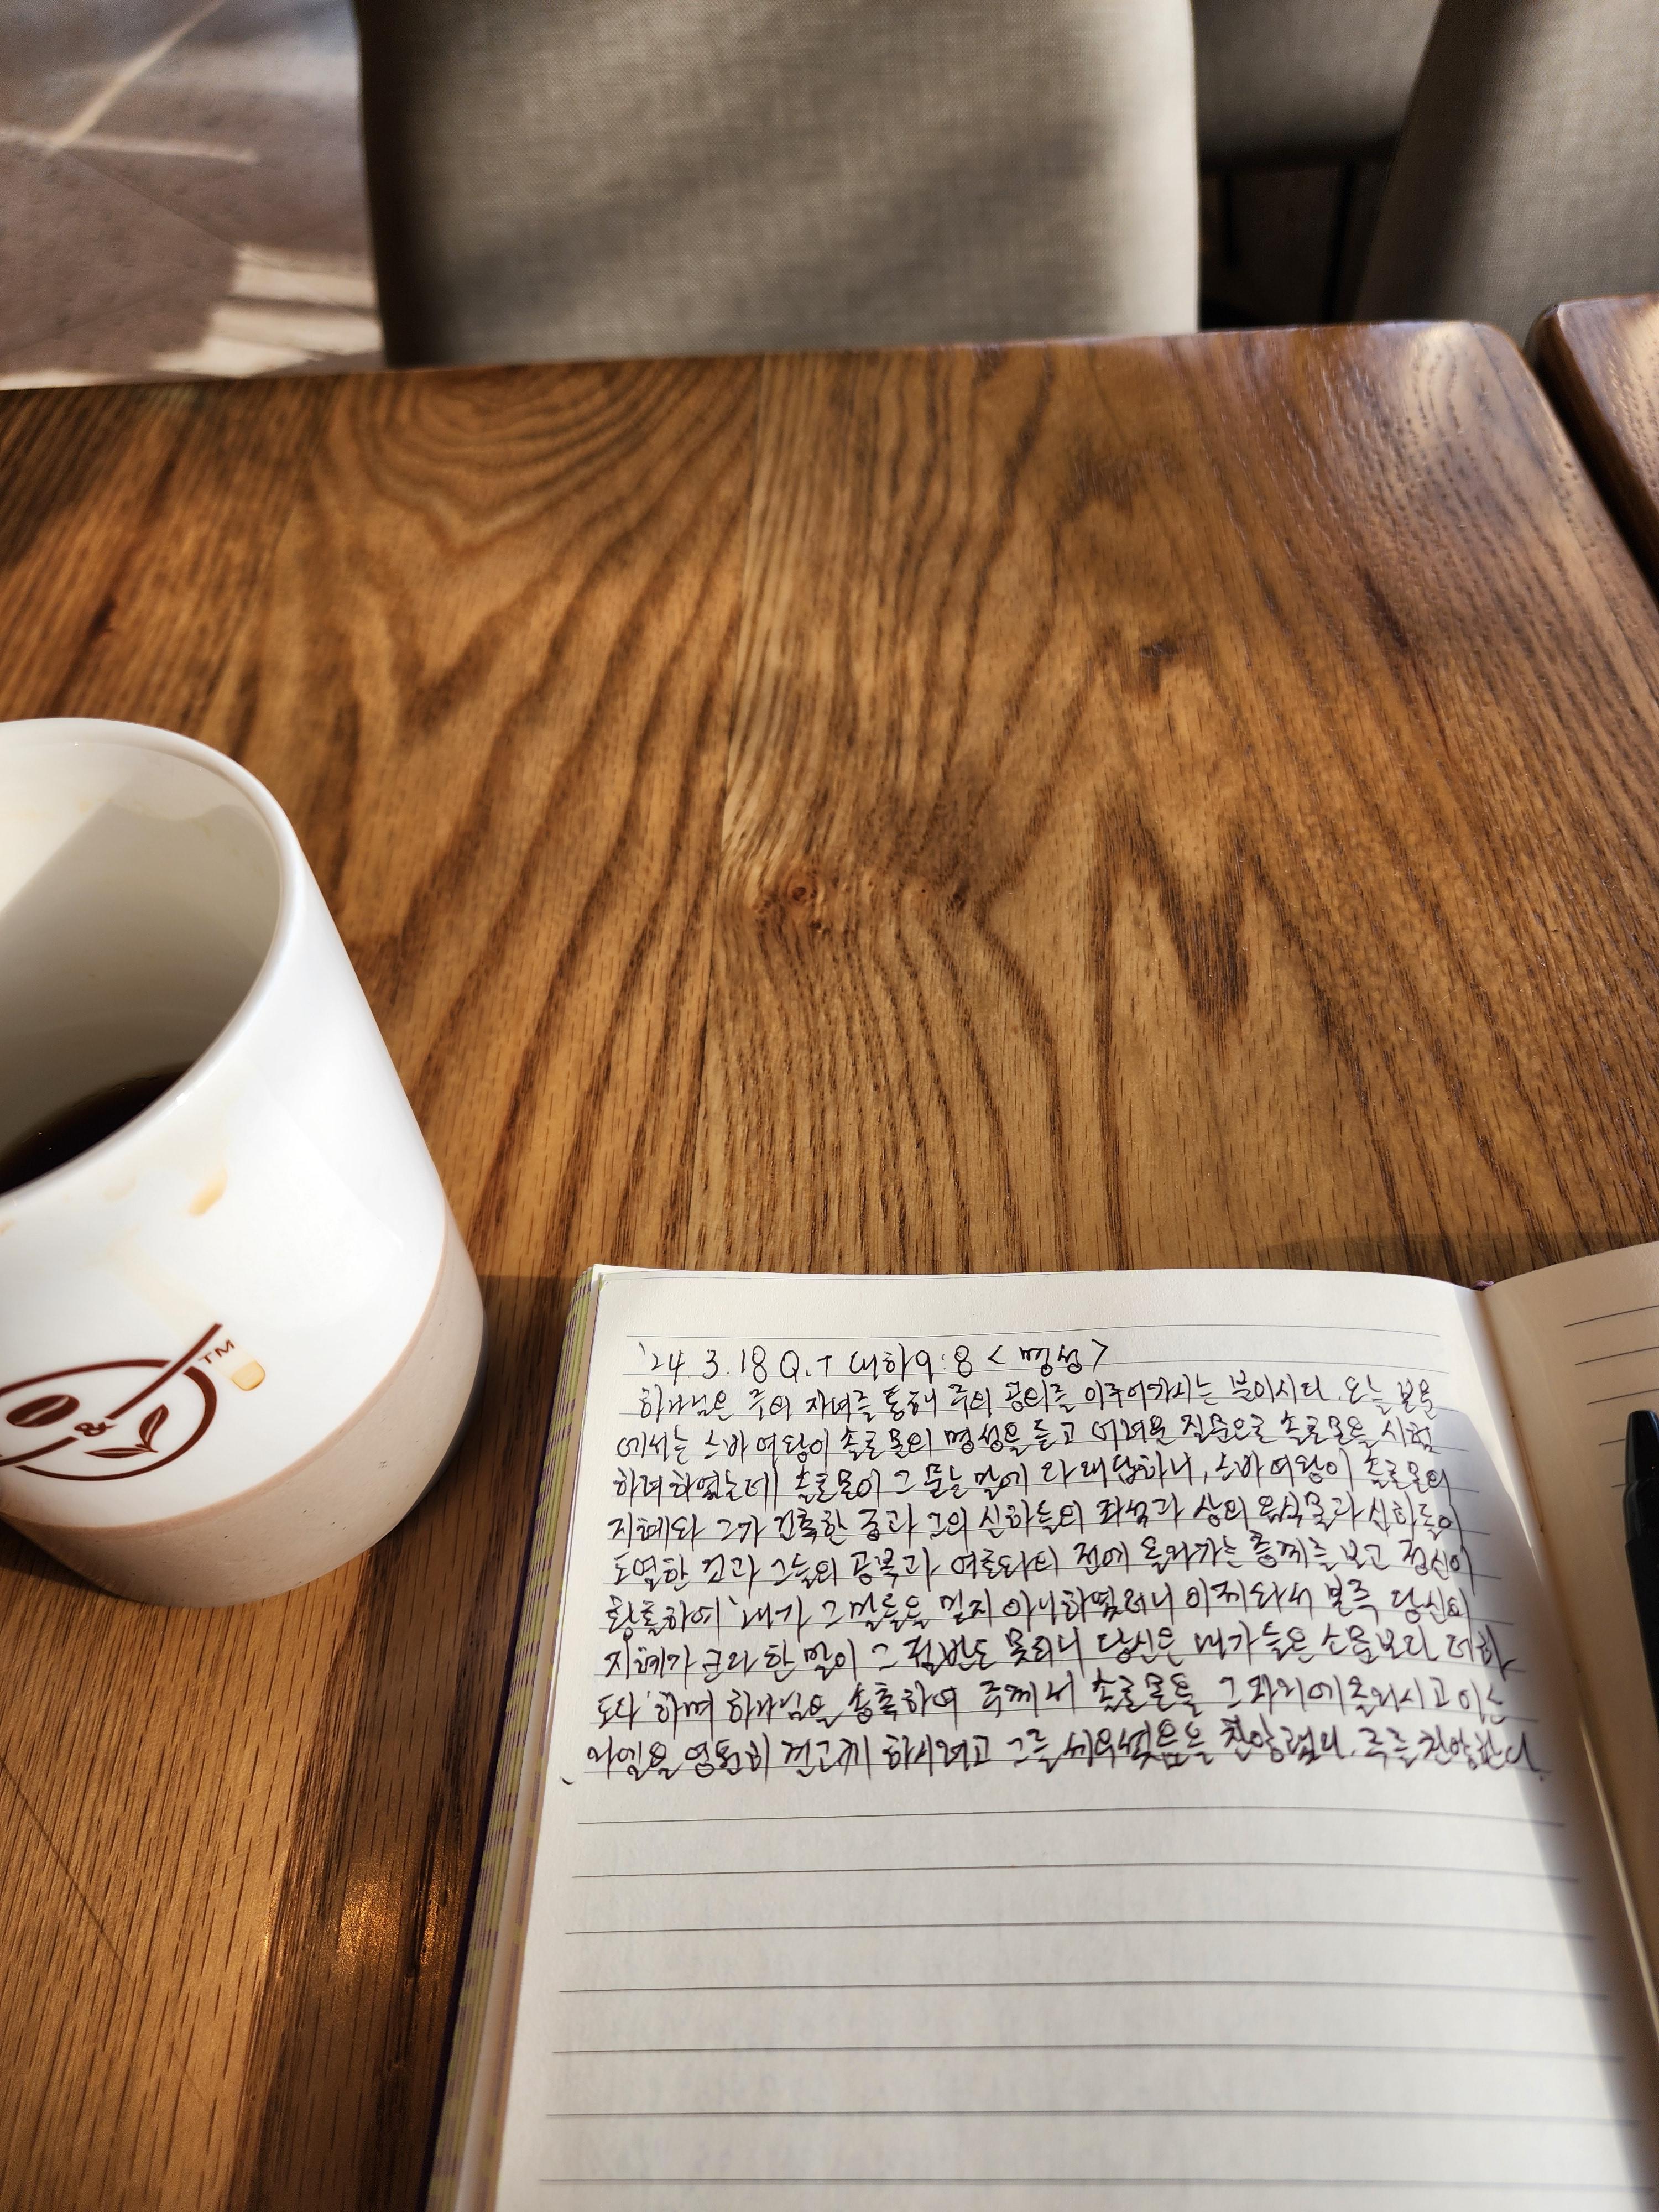 TM
&
'24. 3. 18 Q.T 대하9:8 <명성>
하나님은 주의 자녀를 통해 주의 공의를 이루어가시는 분이시다. 오늘 본문
에서는 스바 여왕이 솔로몬의 명성을 듣고 어려운 질문으로 솔로몬을 시험
하려 하였는데 솔로몬이 그 묻는 말에 다 대답하니, 스바 여왕이 솔로몬의
지혜와 그가 건축한 궁과 그의 신하들의 좌석과 상의 음식물과 신하들이
도열한 것과 그들의 공복과 여호와의 전에 올라가는 층계를 보고 정신이
황홀하여 '내가 그 말들을 믿지 아니하였더니 이제 와서 본즉 당신의
지혜가 크다 한 말이 그 절반도 못되니 당신은 내가 들은 소문보다 더하
도다' 하며 하나님을 송축하여 주께서 솔로몬을 그 자리에 올리시고 이스
라엘을 영원히 견고케 하시려고 그를 세우셨음을 찬양했다. 주를 찬양한다.